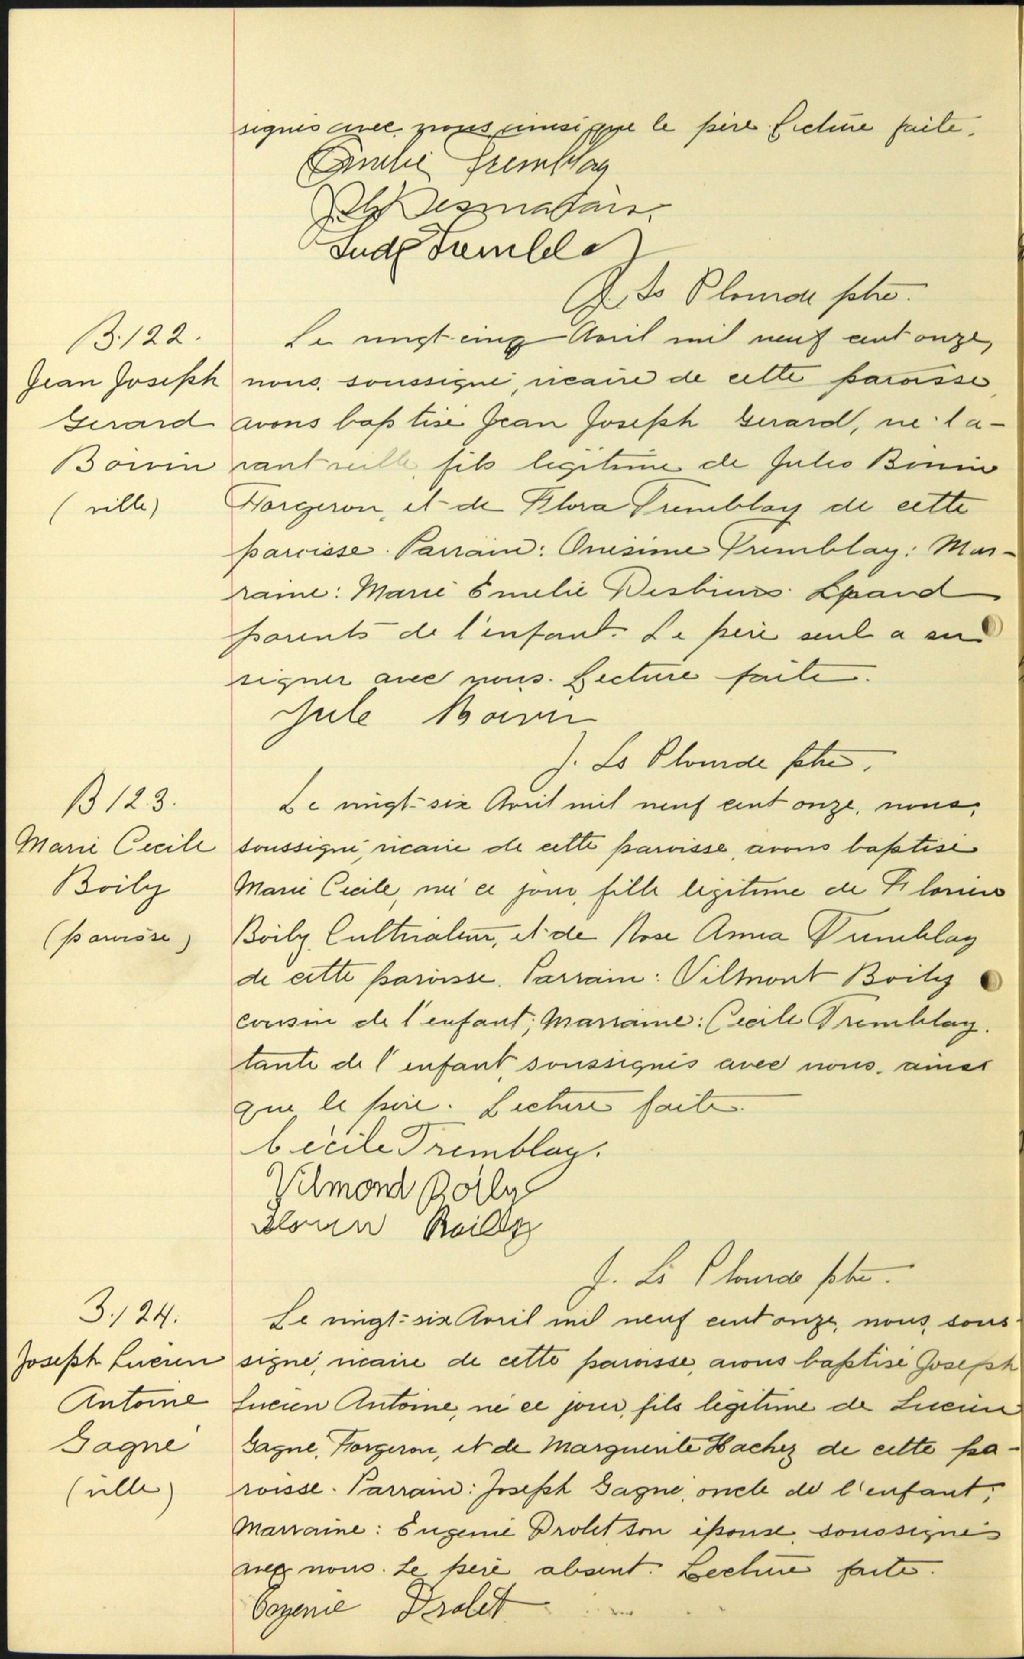 signés avec nous ainsi que le père. Lecture faite.
Emélie Tremblay
Desmarais
Tremblay
J. Ls Plourde ptre.
B.122.
Jean Joseph
Gerard
Boivin
(ville)
Le vingt-cinq Avril mil neuf cent onze,
nous, soussigné, vicaire de cette paroisse,
avons baptisé Jean Joseph Gerard, né l'a-
vant veille, fils légitime de Jules Boivin
Forgeron, et de Flora Tremblay de cette
paroisse. Parrain: Onésime Tremblay; Mar-
raine: Marie Emelie Desbiens grand
parents de l'enfant. Le père seul a su
signer avec nous. Lecture faite.
Jule Boivin
J. Ls Plourde ptre.
B 123.
Marie Cecile
Boily
(paroisse)
Le vingt-six Avril mil neuf cent onze, nous,
soussigné, vicaire de cette paroisse, avons baptisé
Marie Cécile, née ce jour, fille légitime de Florien
Boily, Cultivateur, et de Rose Anna Tremblay
de cette paroisse. Parrain: Vilmont Boily
cousin de l'enfant; Marraine: Cecile Tremblay,
tante de l'enfant, soussignés avec nous, ainsi
que le père. Lecture faite.
Cécile Tremblay.
Vilmond Boily
Boilly
J. Ls Plourde ptre.
B.124.
Joseph Lucien
Antoine
Gagné
(ville)
Le vingt-six Avril mil neuf cent onze, nous, sous-
signé, vicaire de cette paroisse, avons baptisé Joseph
Lucien Antoine, né ce jour, fils légitime de Lucien
Gagné, Forgeron, et de Marguerite Hachez de cette pa-
roisse. Parrain: Joseph Gagné, oncle de l'enfant;
Marraine: Eugenie Drolet son épouse, soussignés
avec nous. Le père absent. Lecture faite.
Eugenie Drolet